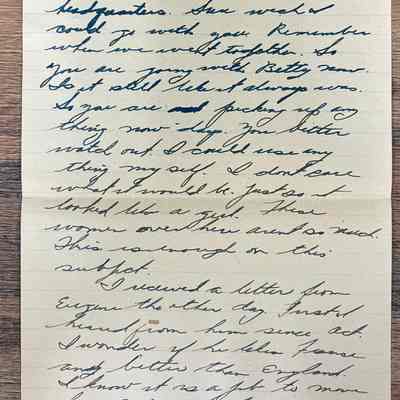 headquarters. Sure wish I
could go with you. Remember
when we went together. So
you are going with Betty now.
Is it still like it always was.
So you are and picking up any
thing now days. You better
watch out. I could use any
thing my self. I don't care
what it would be. just so it
looked like a girl. These
women over here aren't so much.
This is enough on this
subject.
I received a letter from
Eugene the other day. First I
heard from him since Oct.
I wonder if he likes France
any better than England.
I know it is a job to move